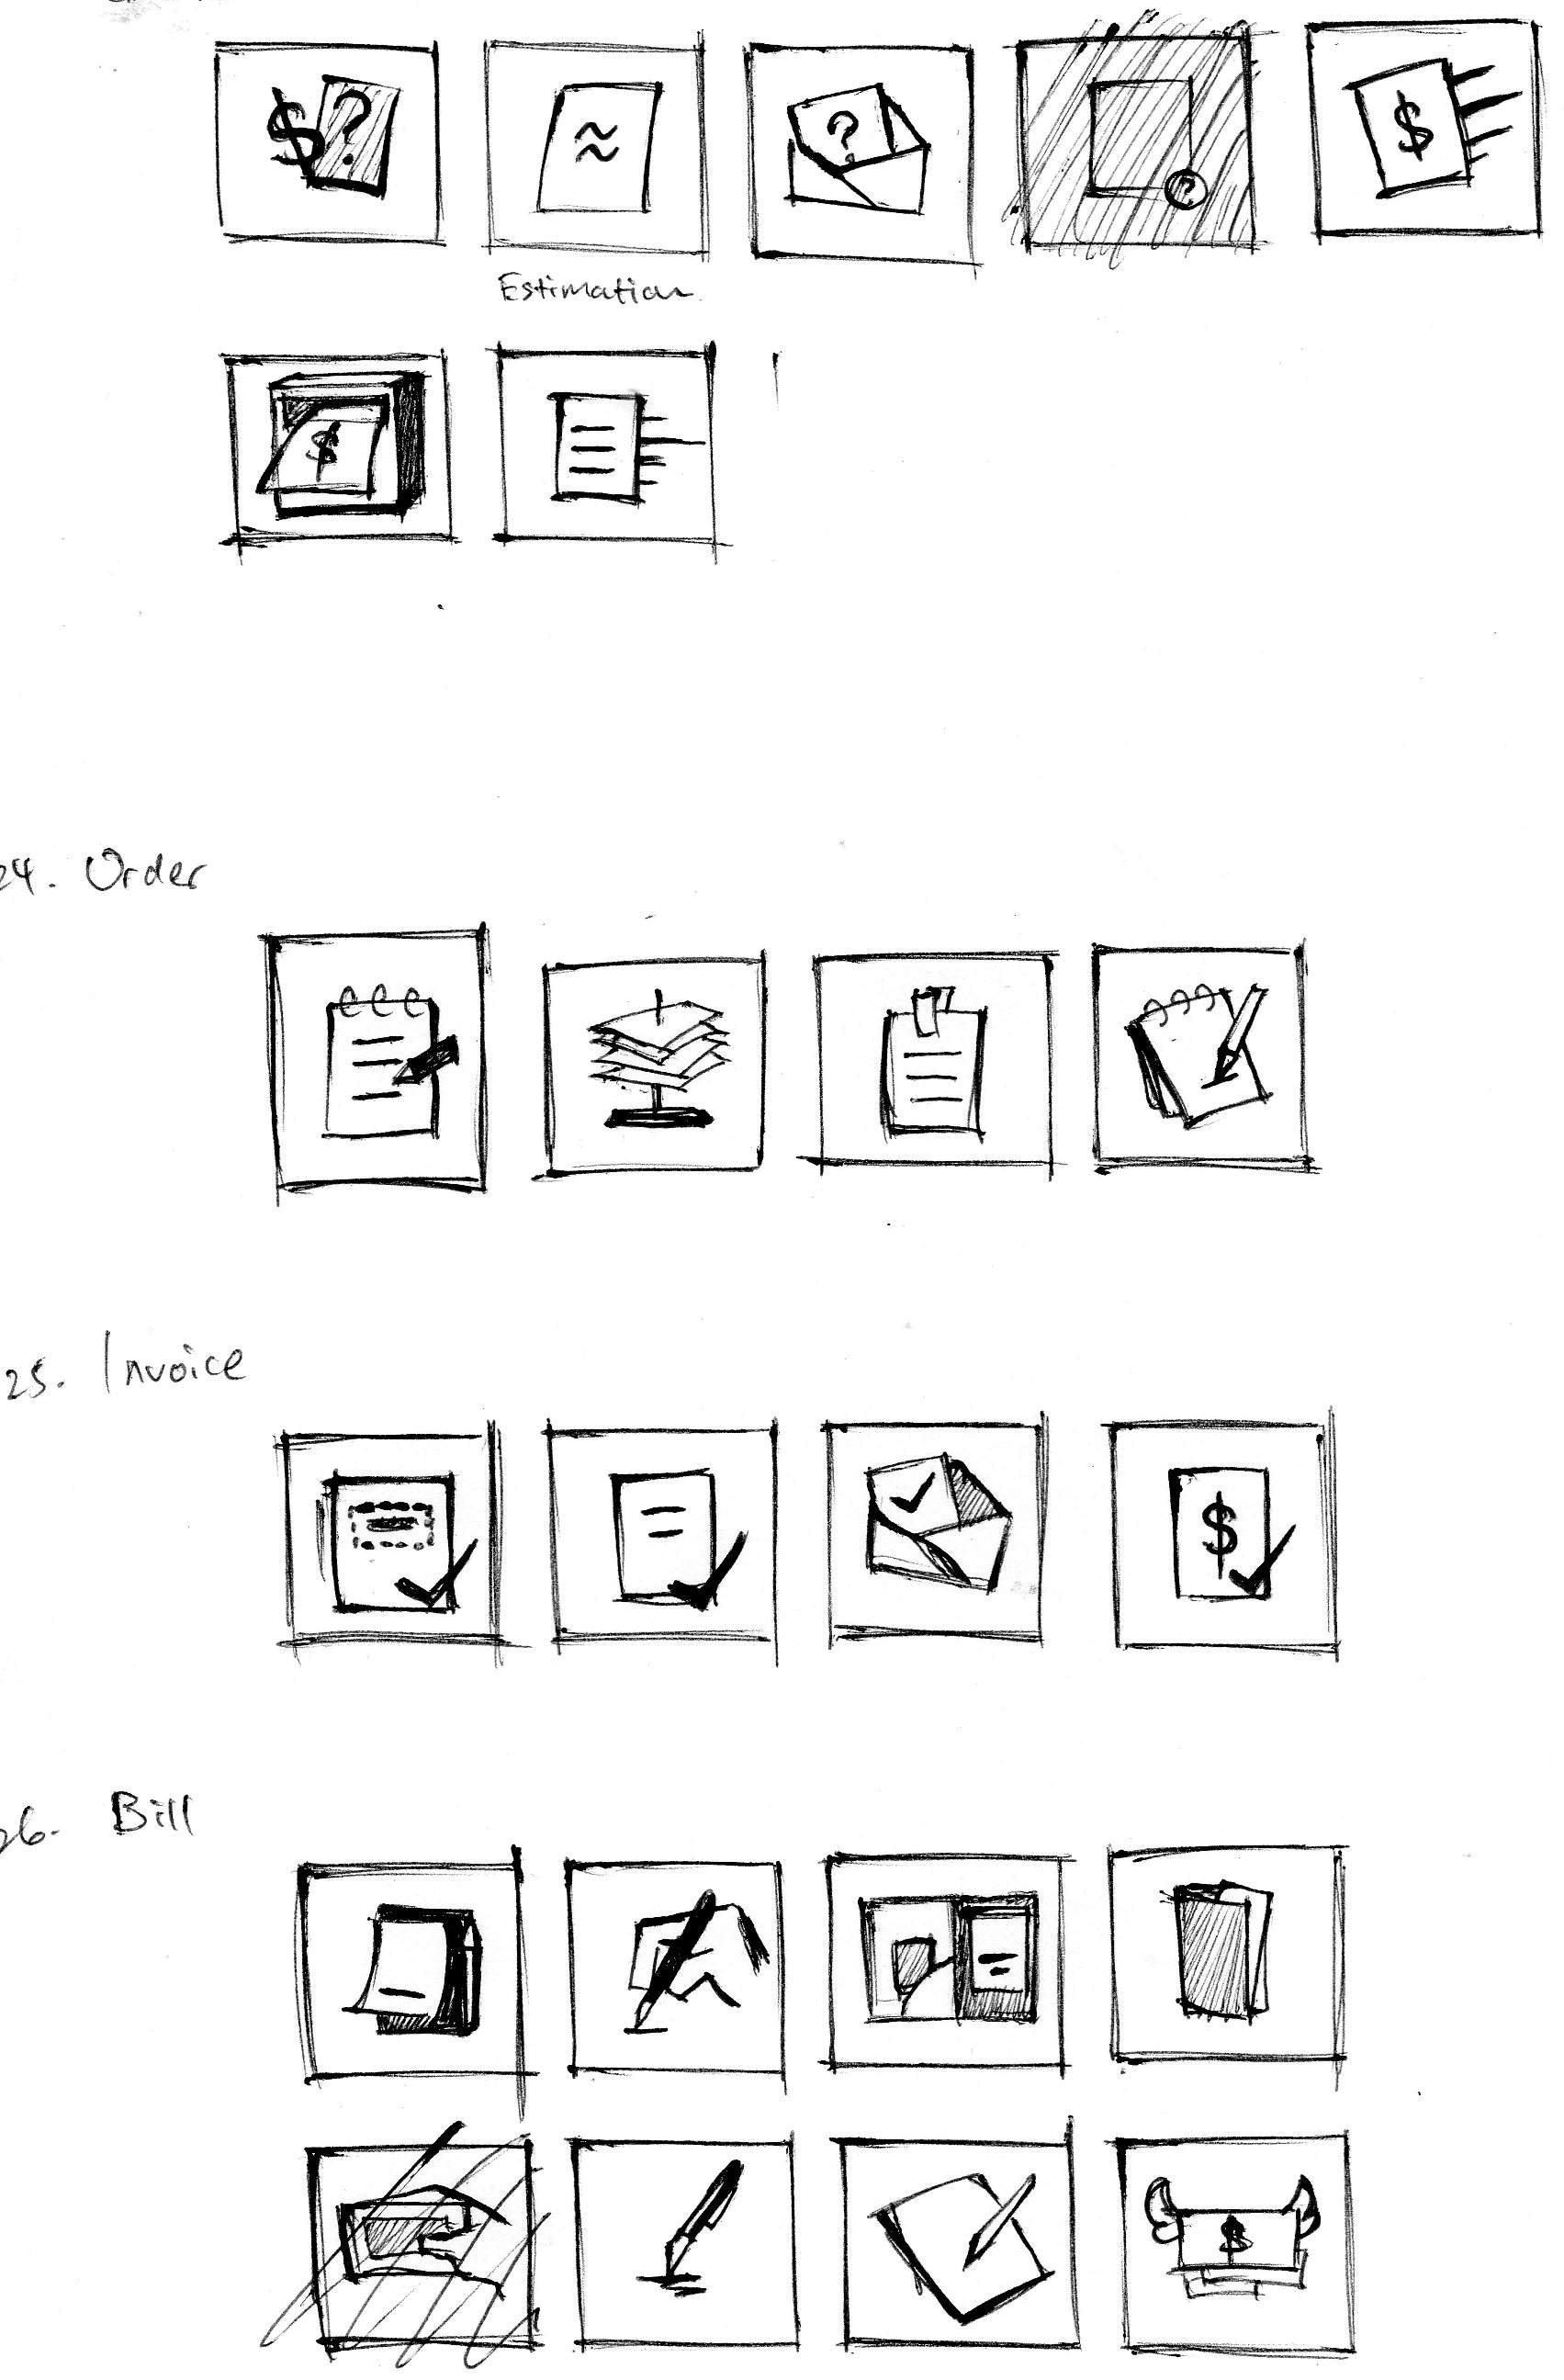 $?
≈
?
?
$
Estimation
$
24. Order
25. Invoice
$
26. Bill
$